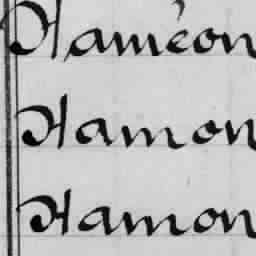 Haméon
Hamon
Hamon